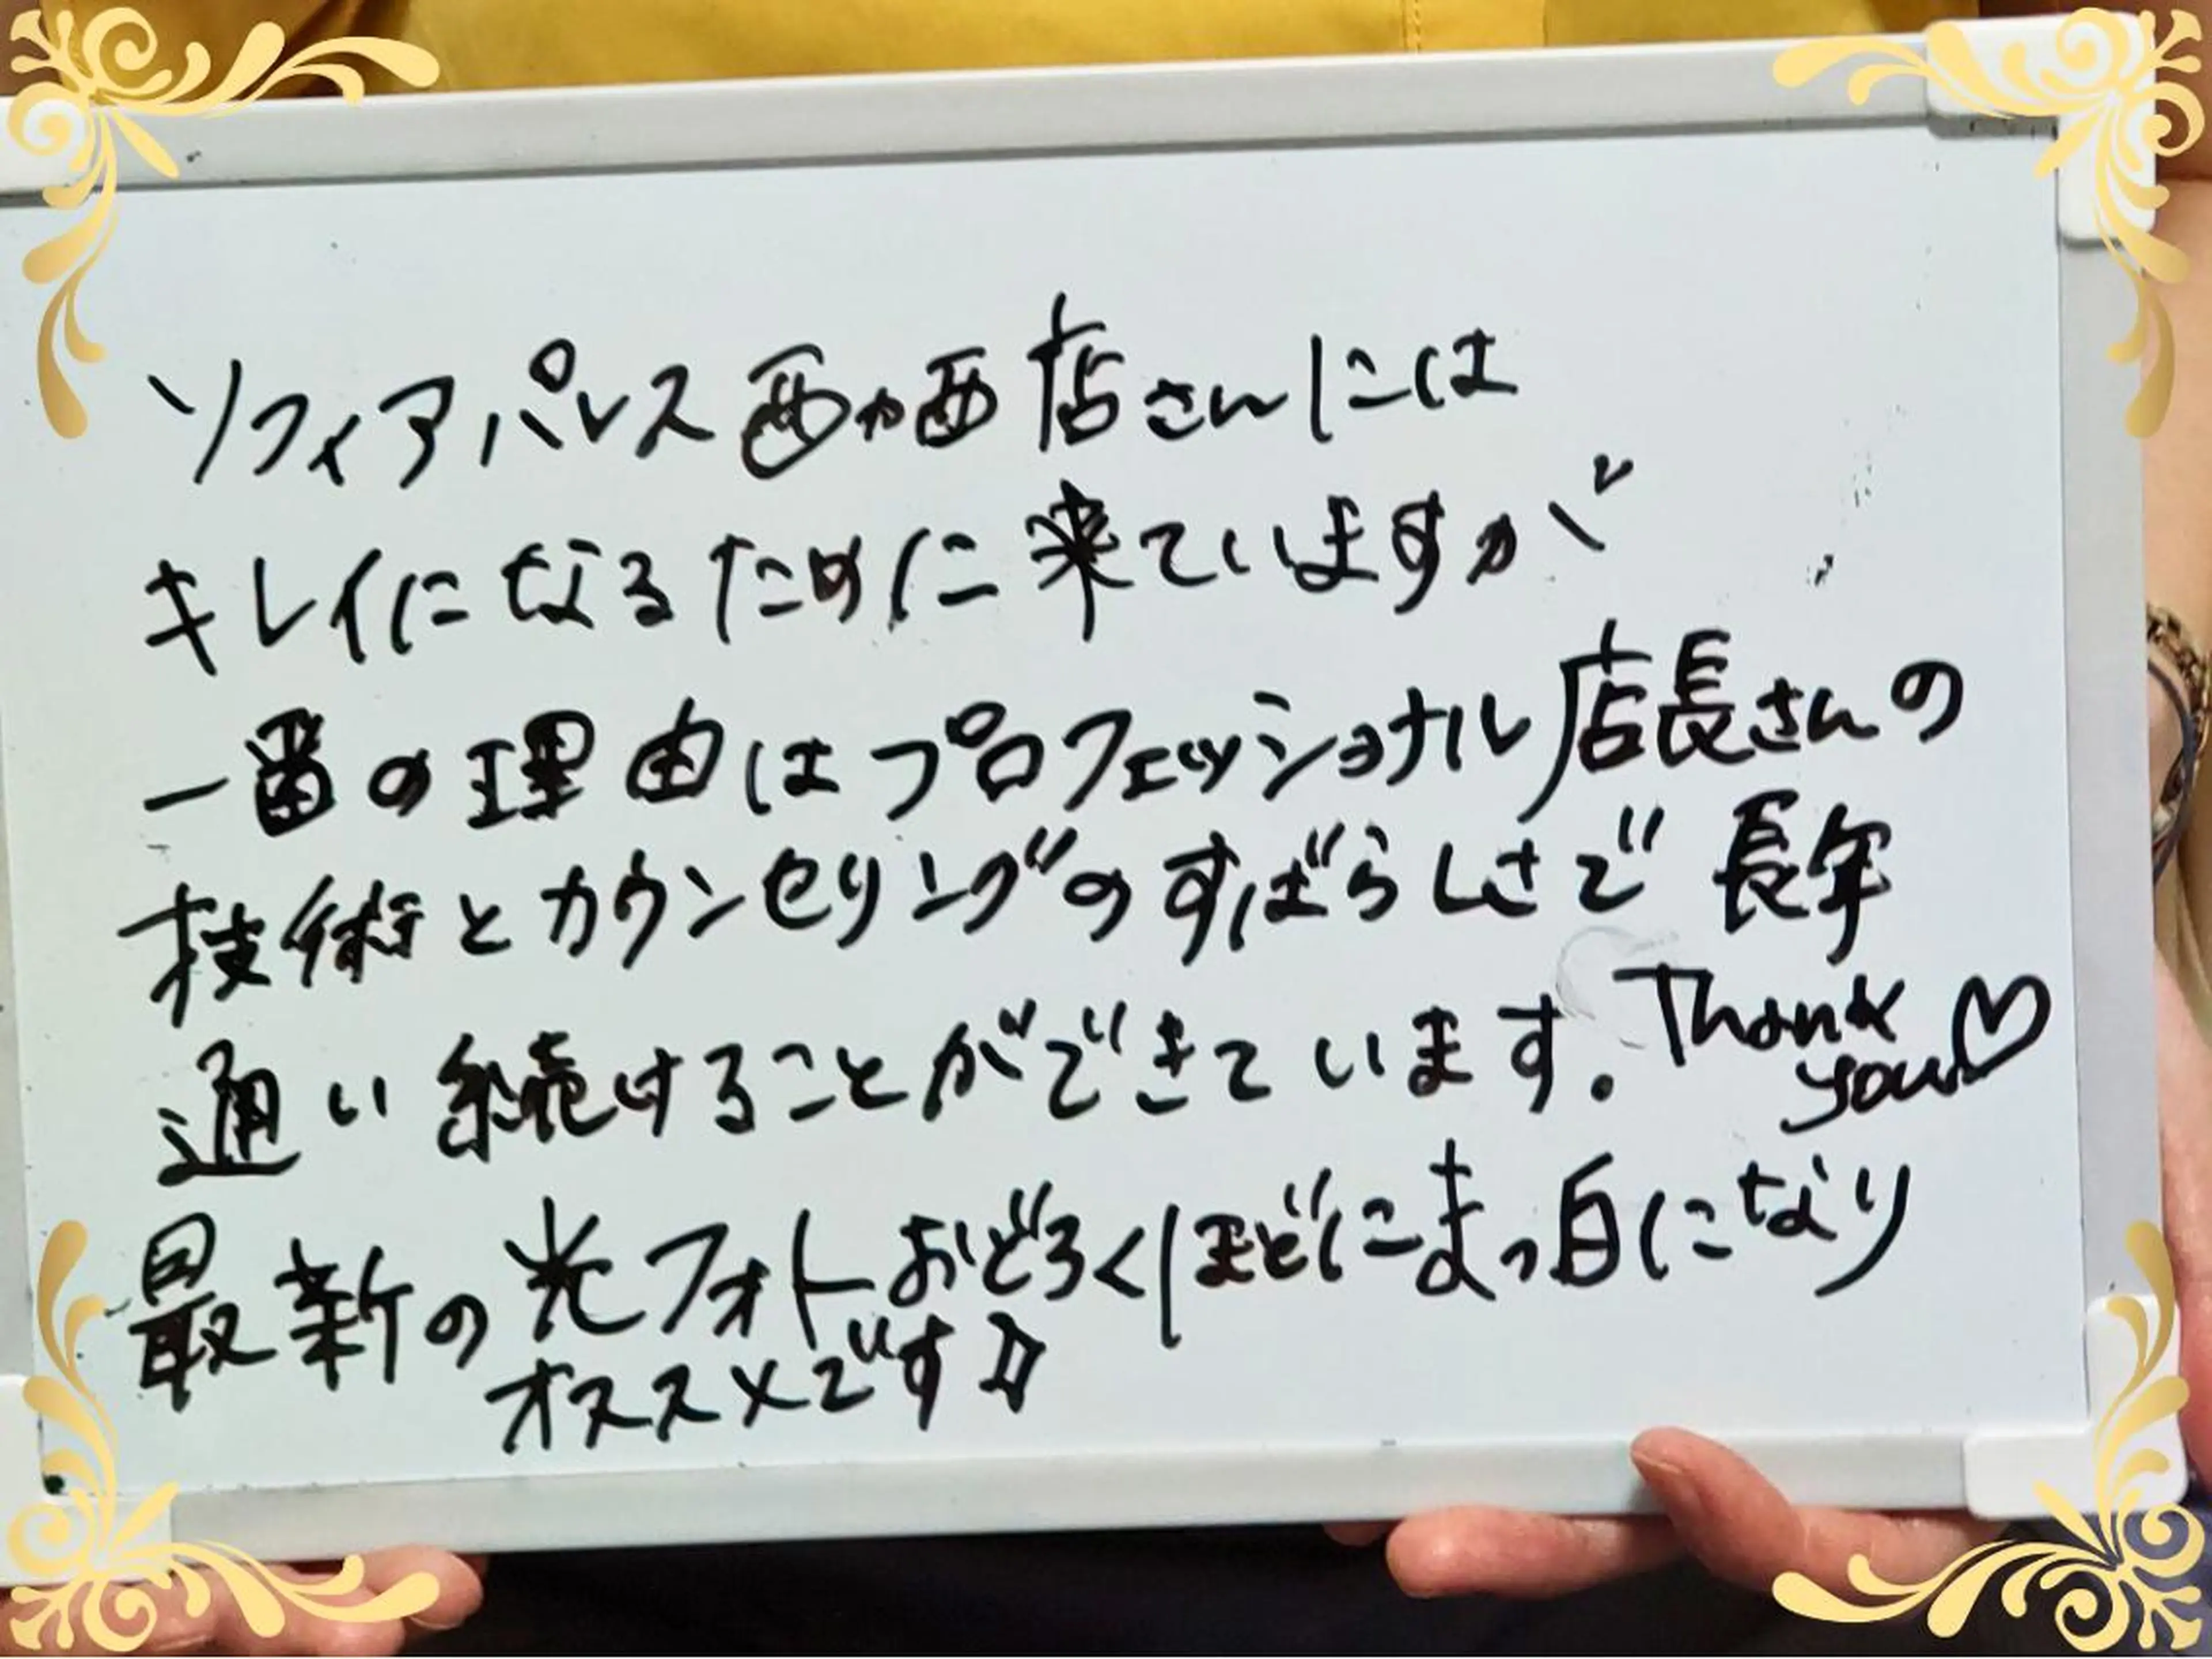 ソフィアパレス西カ西店さんには
キレイになるために来ていますが
一番の理由はプロフェッショナル店長さんの
技術とカウンセリングのすばらしさで長年
通い続けることができています.Thank you♡
最新の光フォトおどろくほどにまっ白になり
オススメです☆